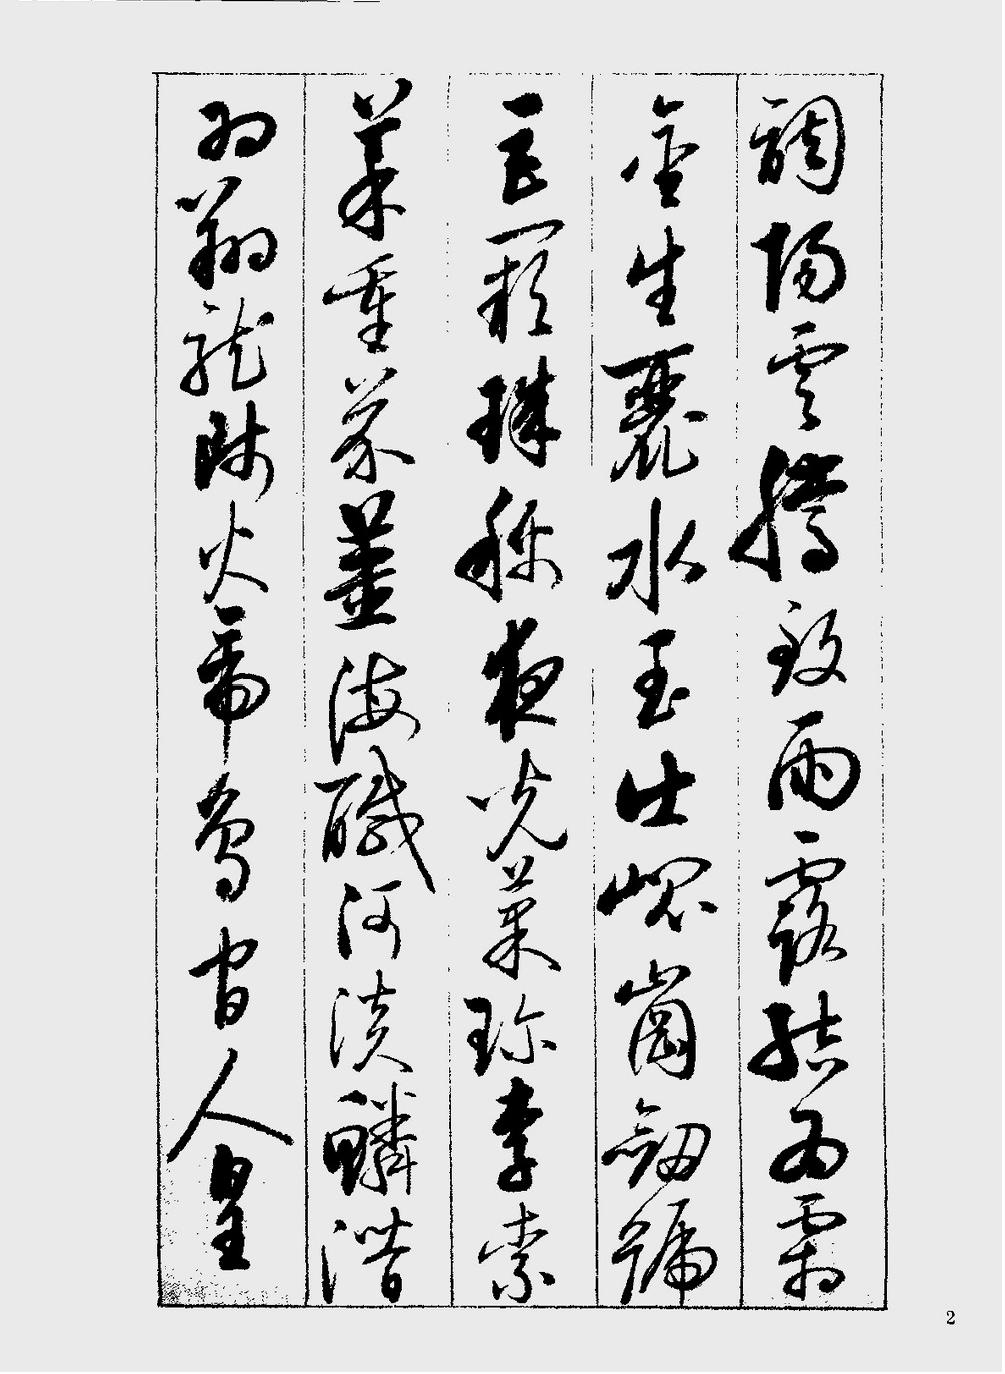 調陽雲騰致雨露結為霜
金生麗水玉出崐崗劍號
巨闕珠稱夜光菓珍李柰
菜重芥薑海醎河淡鱗潛
羽翔龍師火帝鳥官人皇
2